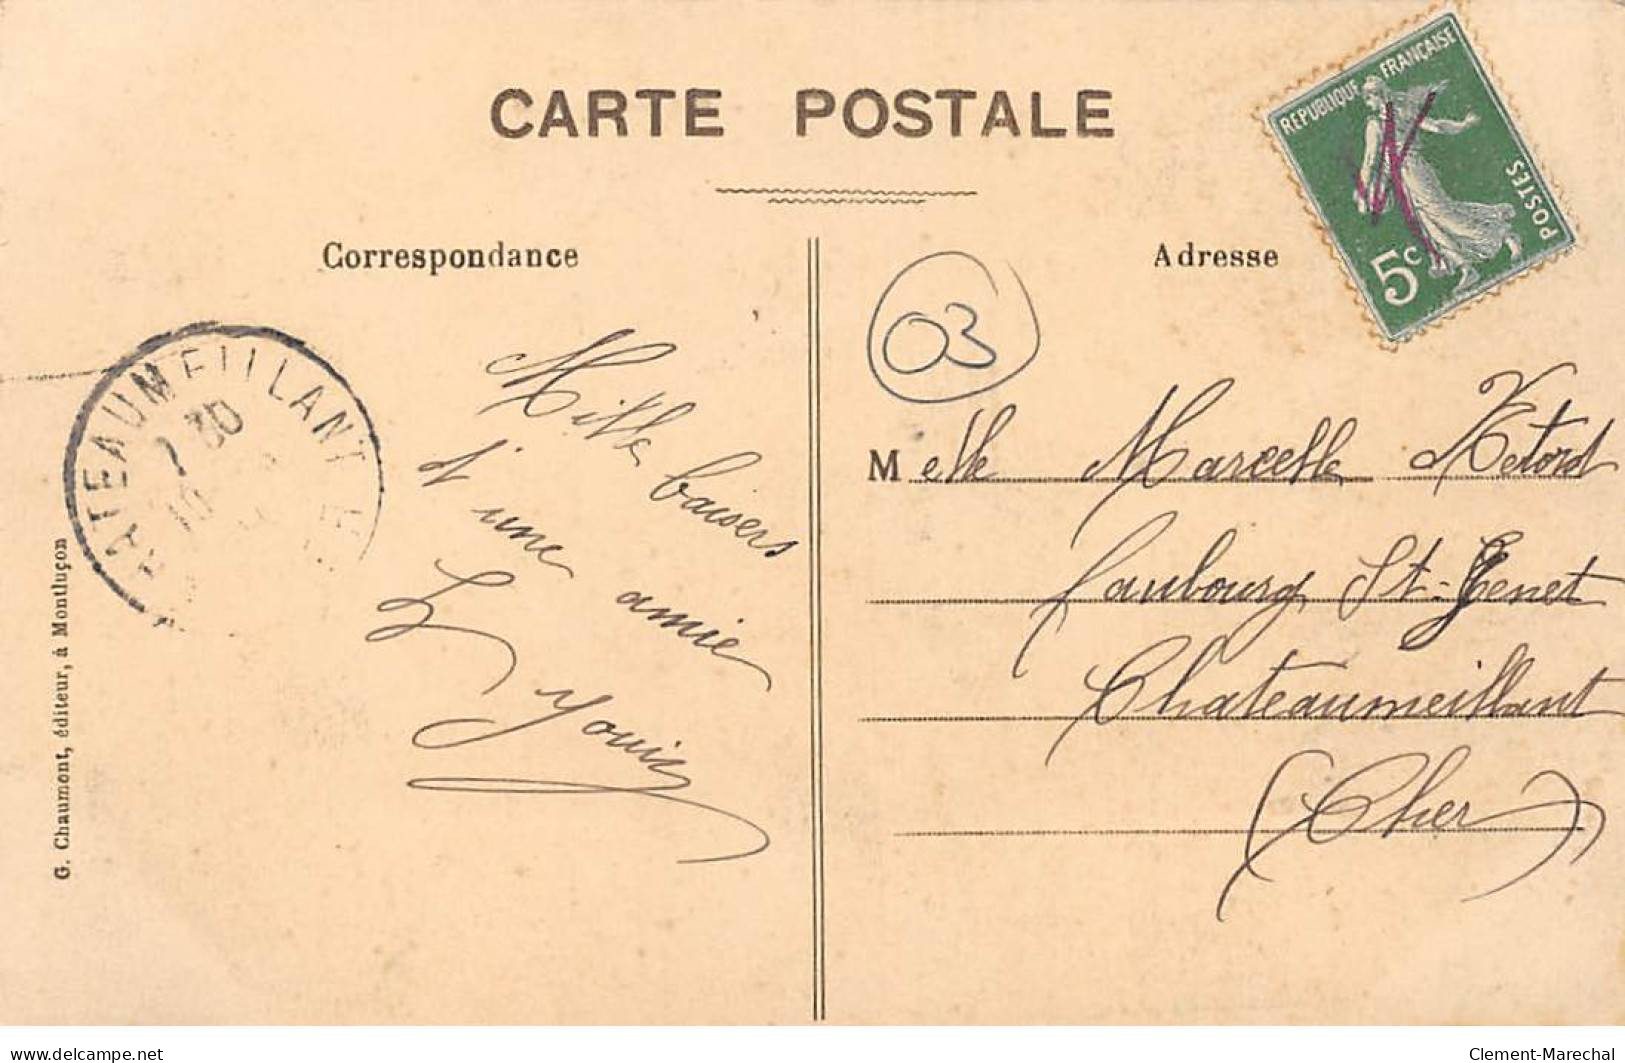 CARTE POSTALE
Correspondance
Adresse
REPUBLIQUE FRANÇAISE
POSTES
5c
03
ATEAUMEILLANT
Mille baisers
d'une amie
Melle Marcelle
faubourg St-Genet
Chateaumeillant
(Cher)
G. Chaumont, éditeur, à Montluçon
www.delcampe.net
Clement-Marechal